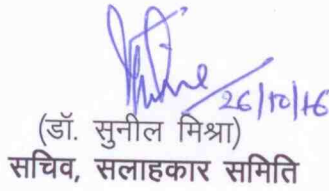 26/10/16
(डॉ. सुनील मिश्रा)
सचिव, सलाहकार समिति